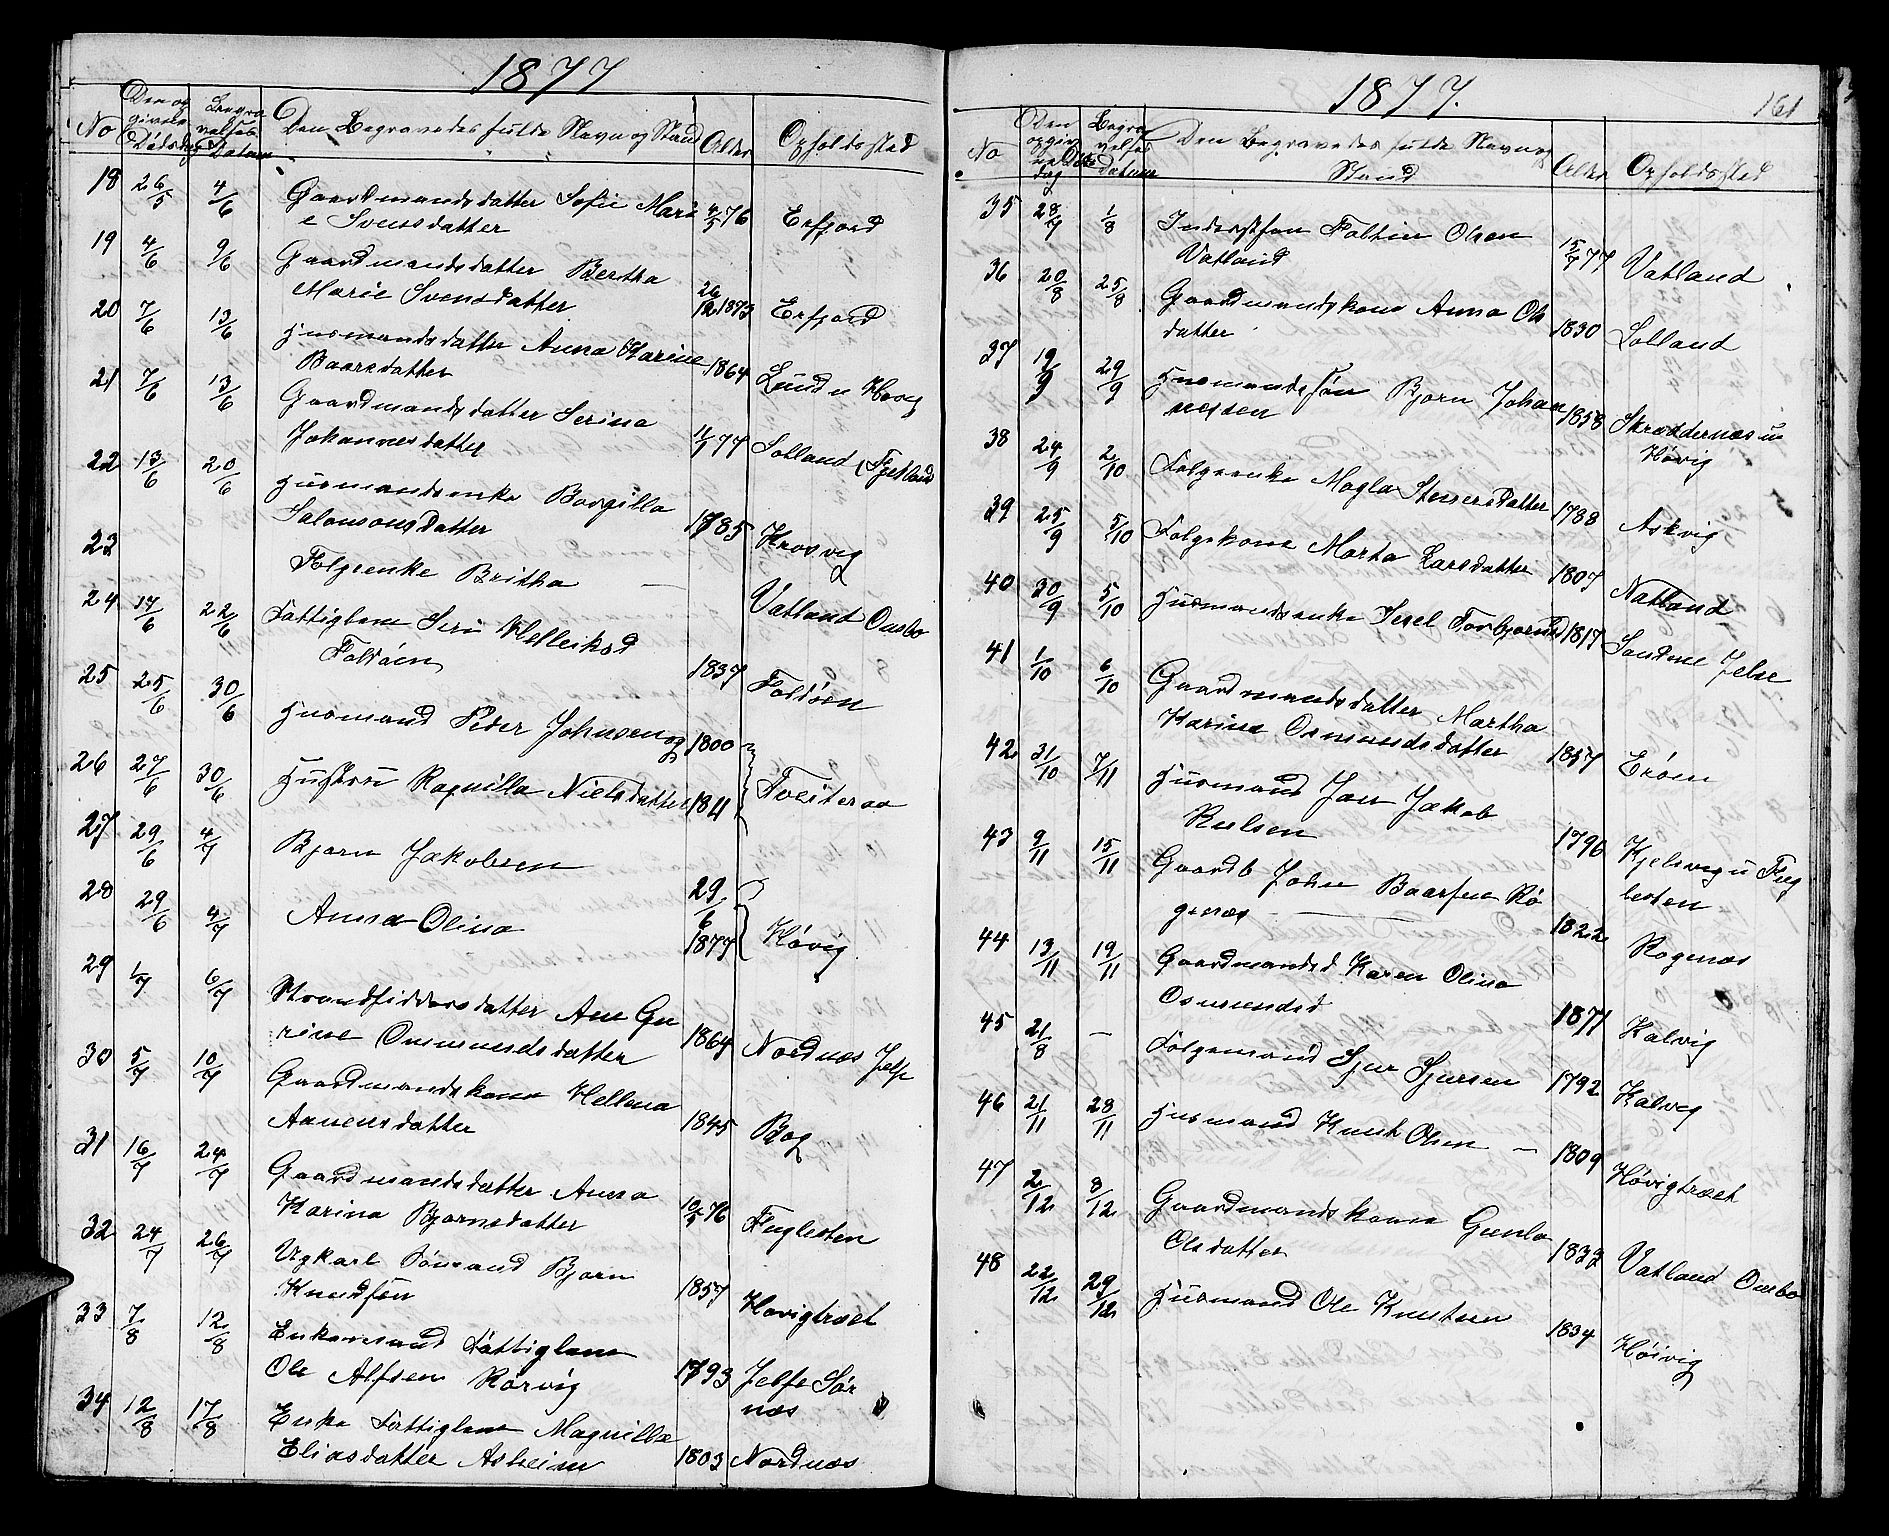 1877
No Den opgivele Dödsdag Begravelses Datum Den Begravedes fulde Navn og Stand Alder Opholdssted
18 26/5 4/6 Gaardmandsdatter Sofie Mari
e Svensdatter 4/5 76 Erfjord
19 4/6 9/6 Gaardmandsdatter Bertha
Marie Svensdatter 26/12 1873 Erfjord
20 7/6 13/6 Husmandsdatter Anna Karine
Baarsdatter 1864 Lund u Hovg
21 7/6 13/6 Gaardmandsdatter Serina
Johannesdatter 11/1 77 Lolland (Fjetland
22 13/6 20/6 Husmandsenke Borgilla
Salomonsdatter 1785 Krosvig
23 Folgeenke Britha — Vatland Ombo
24 17/6 22/6 Fattiglem Siri Helleiksd
Foldöen 1837 Foldöen
25 25/6 30/6 Husmand Peder Johnsen og 1800
26 27/6 30/6 Hustru Ragnilla Nielsdatter 1811 Tveiteraa
27 29/6 4/7 Bjørn Jakobsen
28 29/6 4/7 Anna Olina 29/6 1877 Høvig
29 1/7 6/7 Strandsiddersdatter Ane Gu
rine Ommundsdatter 1864 Nordnæs Jelse
30 5/7 10/7 Gaardmandskone Hellena
Aanensdatter 1845 Bog
31 16/7 24/7 Gaardmandsdatter Anna
Karina Bjørnsdatter 10/5 76 Fuglesten
32 24/7 26/7 Ugkarl Sömand Bjørn
Knudsøn 1857 Hovigtræet
33 7/8 12/8 Enkemand Fattiglem
Ole Alfsen Rørvig 1793 Jelse Sör
næs
34 12/8 17/8 Enke Fattiglem Magnilla
Eliasdatter Asheim 1803 Nordnæs
1877. 161
No Den opgivne Dødsdag Begravelses datum Den Begravedes fulde Navn og
Stand Alder Opholdssted
35 28/7 1/8 Inderstsøn Toltin Olsen
Vatland 15/7 77 Vatland
36 20/8 25/8 Gaardmandskone Anna Ols
datter 1830 Lolland
37 19/9 29/9 Husmandssøn Bjørn Johan
nessen 1858 Skræddernæs u
Høvig
38 24/9 2/10 Folgeenke Magla Steinersdatter 1788 Askvig
39 25/9 5/10 Folgekone Marta Larsdatter 1807 Natland
40 30/9 5/10 Husmandsenke Isael Torbjørnsd 1817 Sandene Jelse
41 1/10 6/10 Gaardmandsdatter Martha
Karina Osmundsdatter 1857 Erøen
42 31/10 7/11 Husmand Jan Jakob
Rulsen 1796 Kjelsvig u Fug
lesten
43 9/11 15/11 Gaardb John Baarsen Ro
genæs — 1822 Rogenæs
44 13/11 19/11 Gaardmandsd Karen Olina
Osmundsd 1871 Kalvig
45 21/8 — Folgemand Sjur Sjursen 1792 Kalvig
46 21/11 28/11 Husmand Knut Olsen — 1809 Høvigtræet
47 2/12 8/12 Gaardmandskone Gunla
Olsdatter 1833 Vatland Ombo
48 22/12 29/12 Husmand Ole Knutsen 1834 Høivig